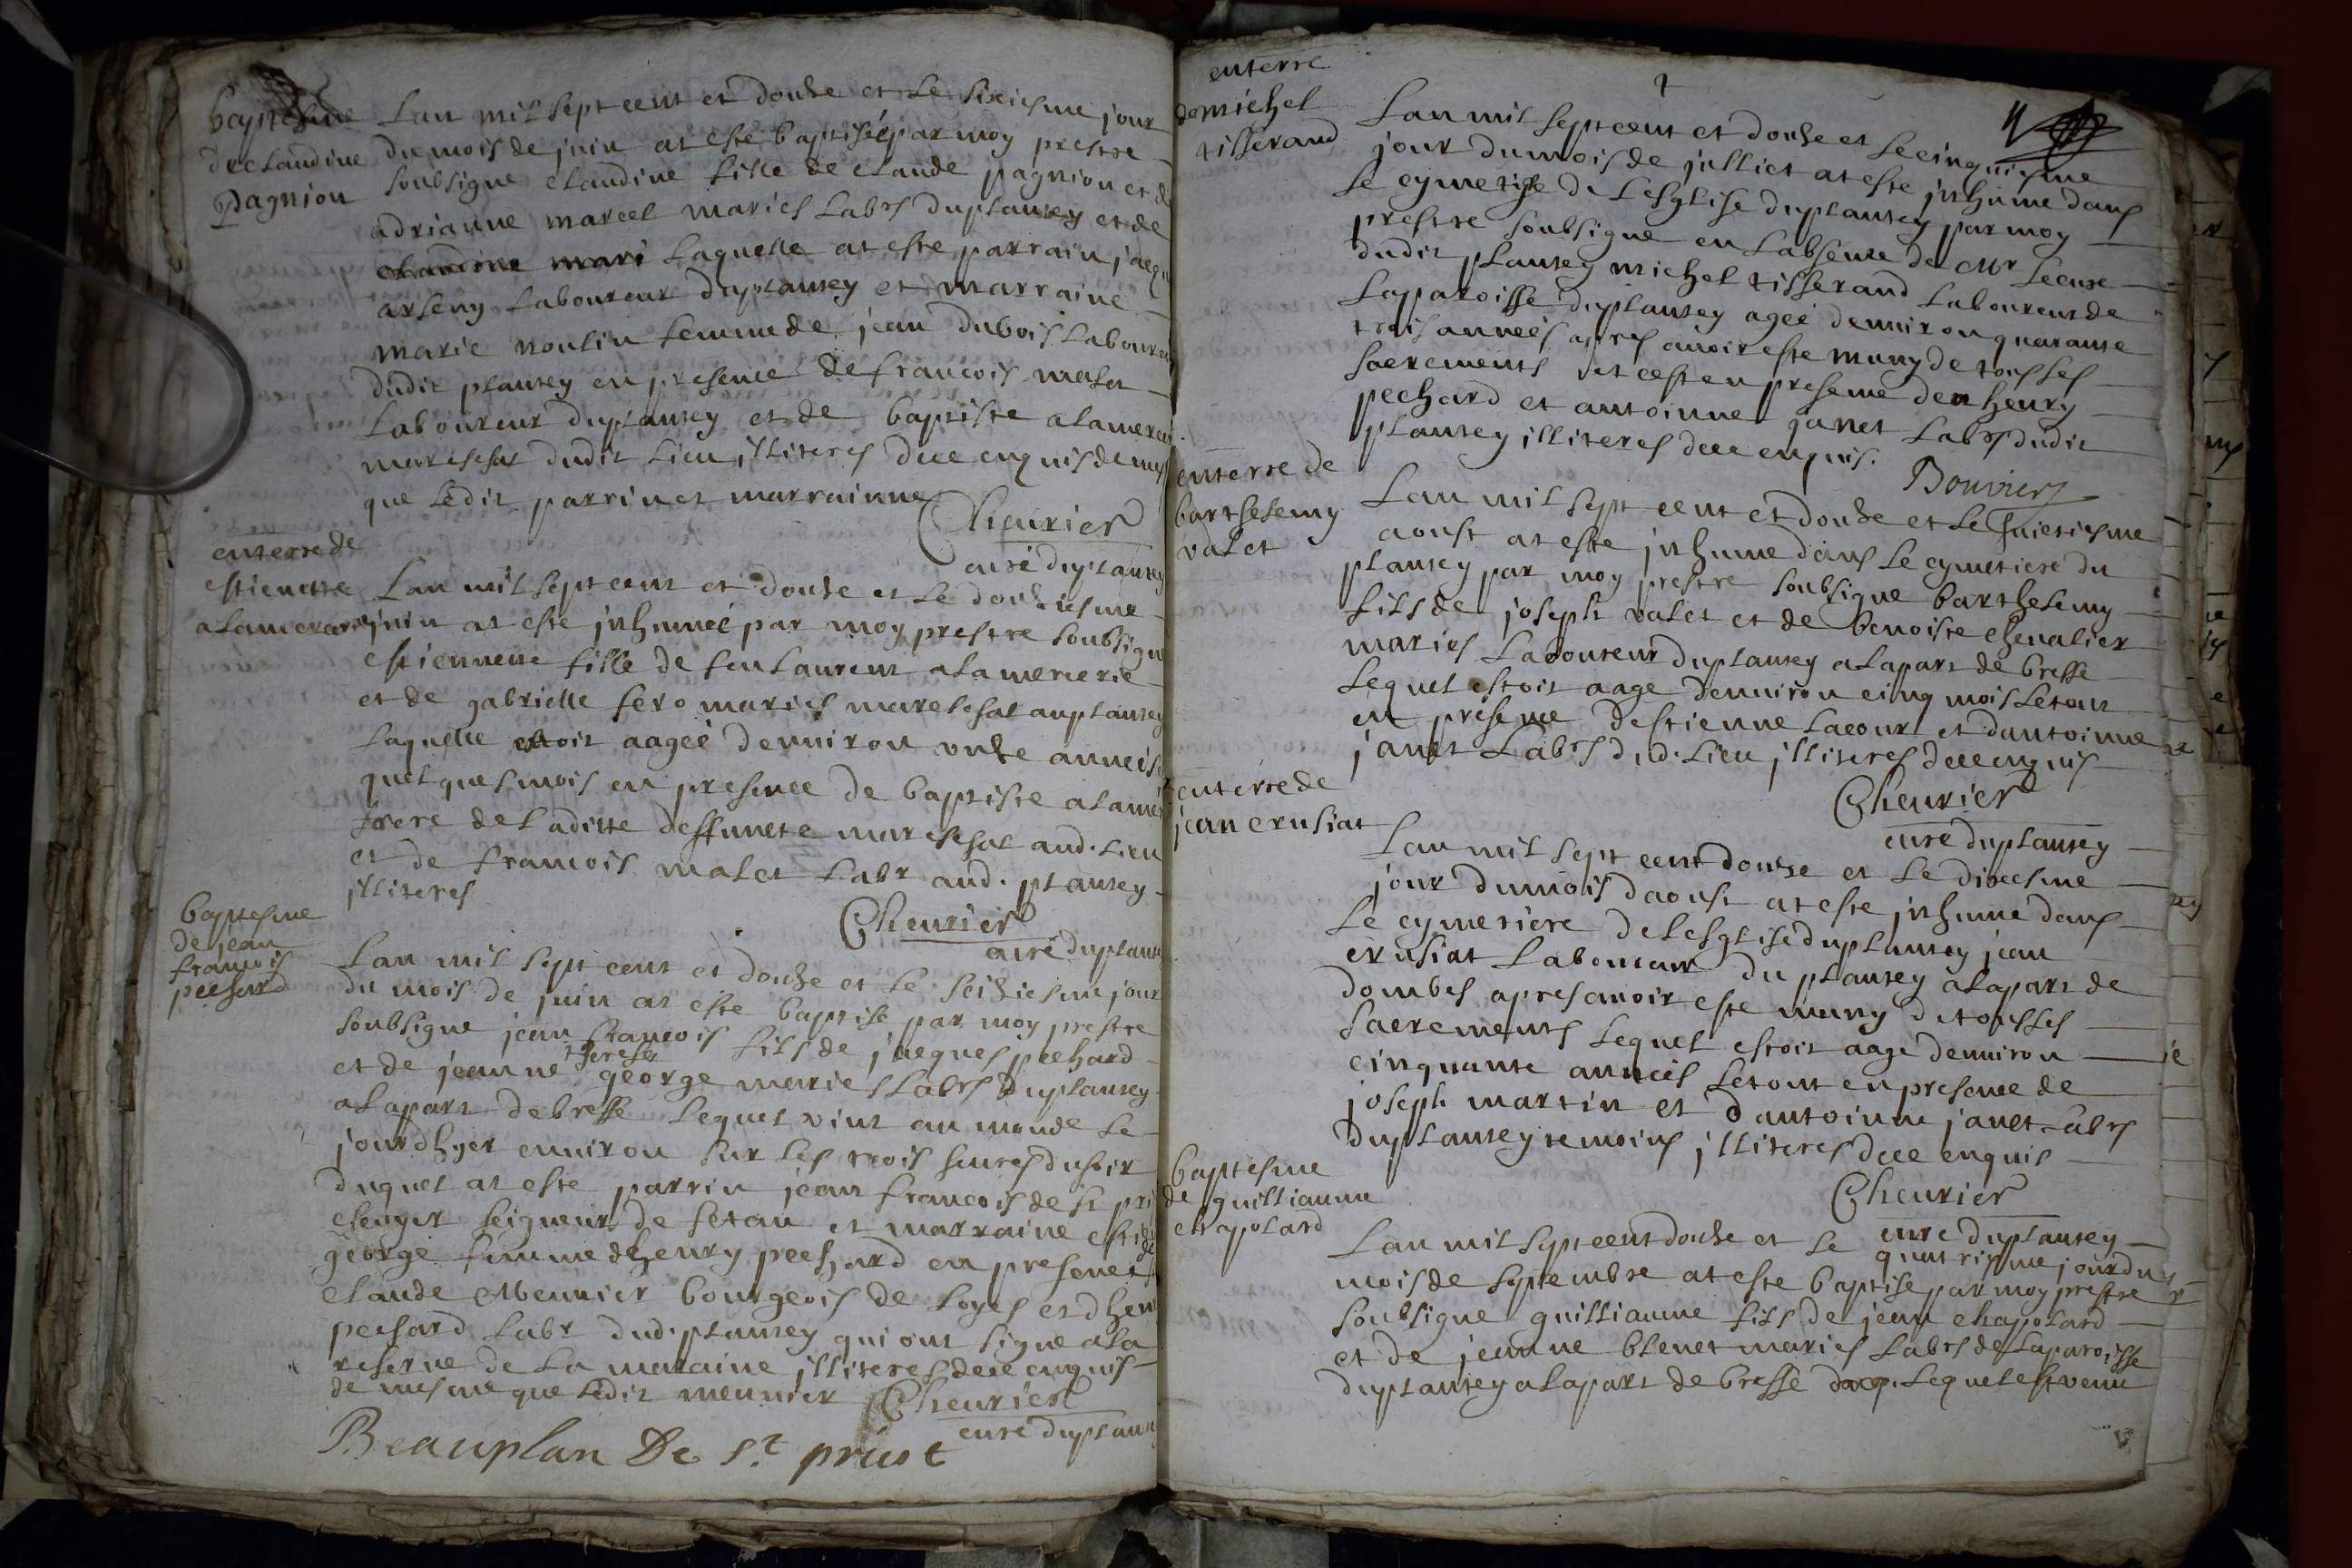 baptesme
de claudine
Pagnion
Lan mil sept cent et douze et le sixiesme jour
du mois de juin at esté baptiséé par moy prestre
soubsigne claudine fille de claude pagnion et de
adrianne marcel mariés labrs duplantey et de
laquelle at este parrain jacqu
arseny laboureur duplantey et marraine
marie moulin femme de jean dubois laboureu
dudit plantey en presence de francois malet
laboureur duplantey et de baptiste alamerci
mareschal dudit lieu illiteres dece enquis de mes
que ledit parrin et marrainne
Cheurier
curé duplantey
enterre de
estienette
alamercerie
Lan mil sept cent et douze et le douziesme
juin at este inhumeé par moy prestre soubsigne
estiennette fille de feu laurent alamercerie
et de gabrielle fero mariés mareschal auplantey
laquelle estoit aageé denuiron unze anneés
quelques mois en presence de baptiste alamer
frere de laditte deffuncte mareschal aud. lieu
et de francois malet labr aud. plantey
illiteres
Cheurier
curé duplante
baptesme
de jean
francois
pechard
Lan mil sept cent et douze et le seiziesme jour
du mois de juin at este baptise par moy prestre
soubsigne jean francois fils de jacques pechard
therese
et de jeanne george mariés labrs duplantey
alapart debresse lequel vint au monde le
jourdhyer enuiron sur les trois heures dusoir
duquel at este parrin jean francois de st pri
escuyer seigneur de fetan et marraine esti
george femme dhenry pechard en presence de
claude Meunier bourgeois de loyes et dhen
pechard labr dud. plantey qui ont signe ala
reserue de la maraine illiteres dece enquis
de mesme que ledit meunier Cheurier
curé duplante
Beauplan De St. priest
enterre
de michel
tisserand
Lan mil sept cent et douze et le cinquiesme
jour dumois de julliet at este inhume dans
le cymetiere de lesglise duplantey par moy
prestre soubsigne en labsence de Mr le cure
dudit plantey michel tisserand laboureur de
laparoisse duplantey ageé denuiron quarante
trois anneés apres auoir este muny de tous ses
sacrements et cest en presence de henry
pechard et antoinne janet labrs dudit
plantey illiteres dece enquis.
Bouvier
enterre de
barthelemy
valet
Lan mil sept cent et douze et le huictiesme
aoust at este inhume dans le cymetiere du
plantey par moy prestre soubsigne barthelemy
fils de joseph valet et de benoiste cheualier
mariés laboureur duplantey alapart de bresse
lequel estoit aage denuiron cinq mois letout
en présence destienne lacour et dantoinne
janet labrs dud. lieu illiteres dece enquis
Cheurier
curé duplantey
enterre de
jean crusiat
Lan mil sept cent douze et le dixiesme
jour dumois daoust at este inhume dans
le cymetiere de lesglise duplantey jean
crusiat laboureur du plantey alapart de
dombes apres auoir este muny de tous ses
sacrements lequel estoit aage denuiron
cinquante anneés letout en presence de
joseph martin et dantoinne janet labrs
duplantey temoins illiteres dece enquis
Cheurier
curé duplantey
baptesme
de guilliaume
chapolard
Lan mil sept cent douze et le quatriesme jour du
mois de septembre at este baptise par moy prestre
soubsigne guilliaume fils de jean chapolard
et de jeanne blenet mariés labrs de laparoisse
duplantey alapart de bresse lequel est venu